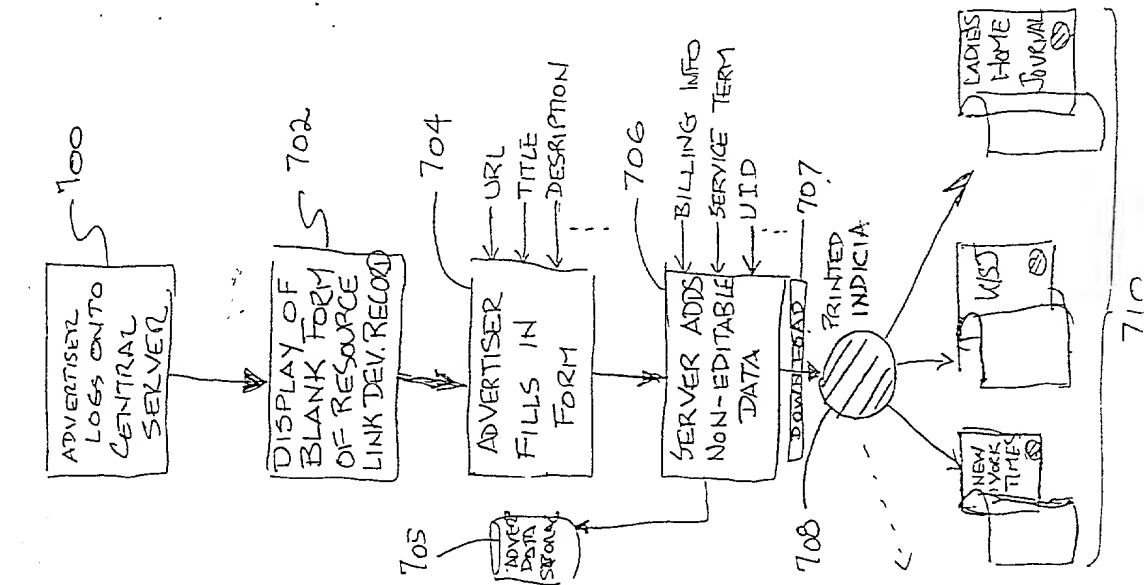 700
ADVERTISER
LOGS ONTO
CENTRAL
SERVER
702
DISPLAY OF
BLANK FORM
OF RESOURCE
LINK DEV. RECORD
704
ADVERTISER
FILLS IN
FORM
URL
TITLE
DESRIPTION
705
DATA
706
SERVER ADDS
NON-EDITABLE
DATA
BILLING INFO
SERVICE TERM
UID
707
DOWNLOAD
708
PRINTED
INDICIA
NEW
YORK
TIMES
WSJ
LADIES
HOME
JOURNAL
710